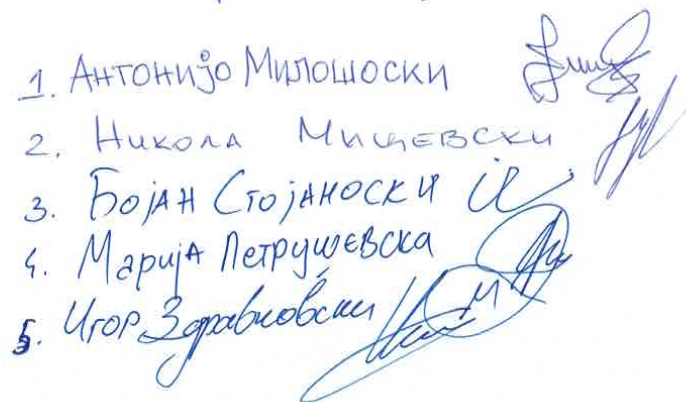 1. Антонијо Милошоски
2. Никола Мицевски
3. Бојан Стојаноски
4. Марија Петрушевска
5. Игор Здравковски